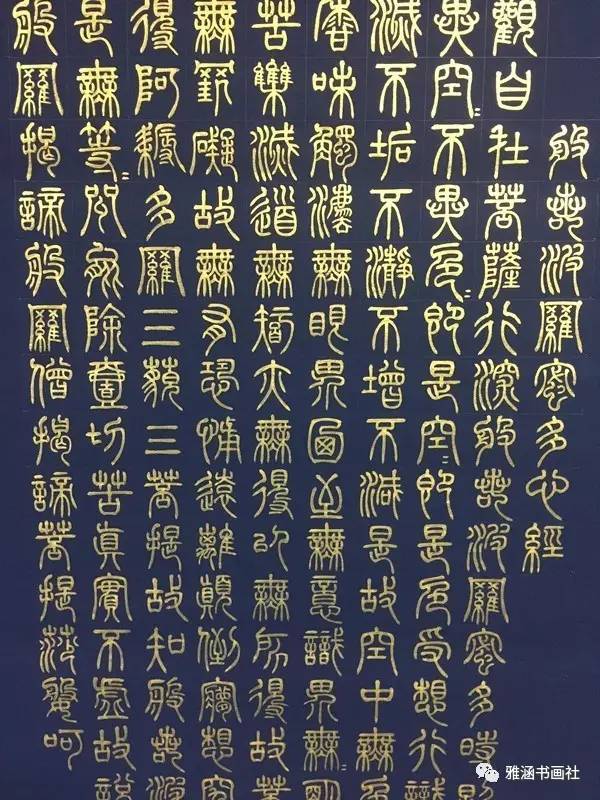 般若波羅蜜多心經
觀自在菩薩行深般若波羅蜜多時照
異空〻不異色〻即是空〻即是色受想行識
滅不垢不瀞不增不減是故空中無色
香味觸法無眼界乃至無意識界無〻明
苦集滅道無智亦無得以無所得故菩
無罣礙故無有恐怖遠離顛倒夢想究
得阿耨多羅三藐三菩提故知般若波
是無等〻呪能除壹切苦真實不虛故說
般羅揭諦般羅僧揭諦菩提莎婆呵
雅涵书画社